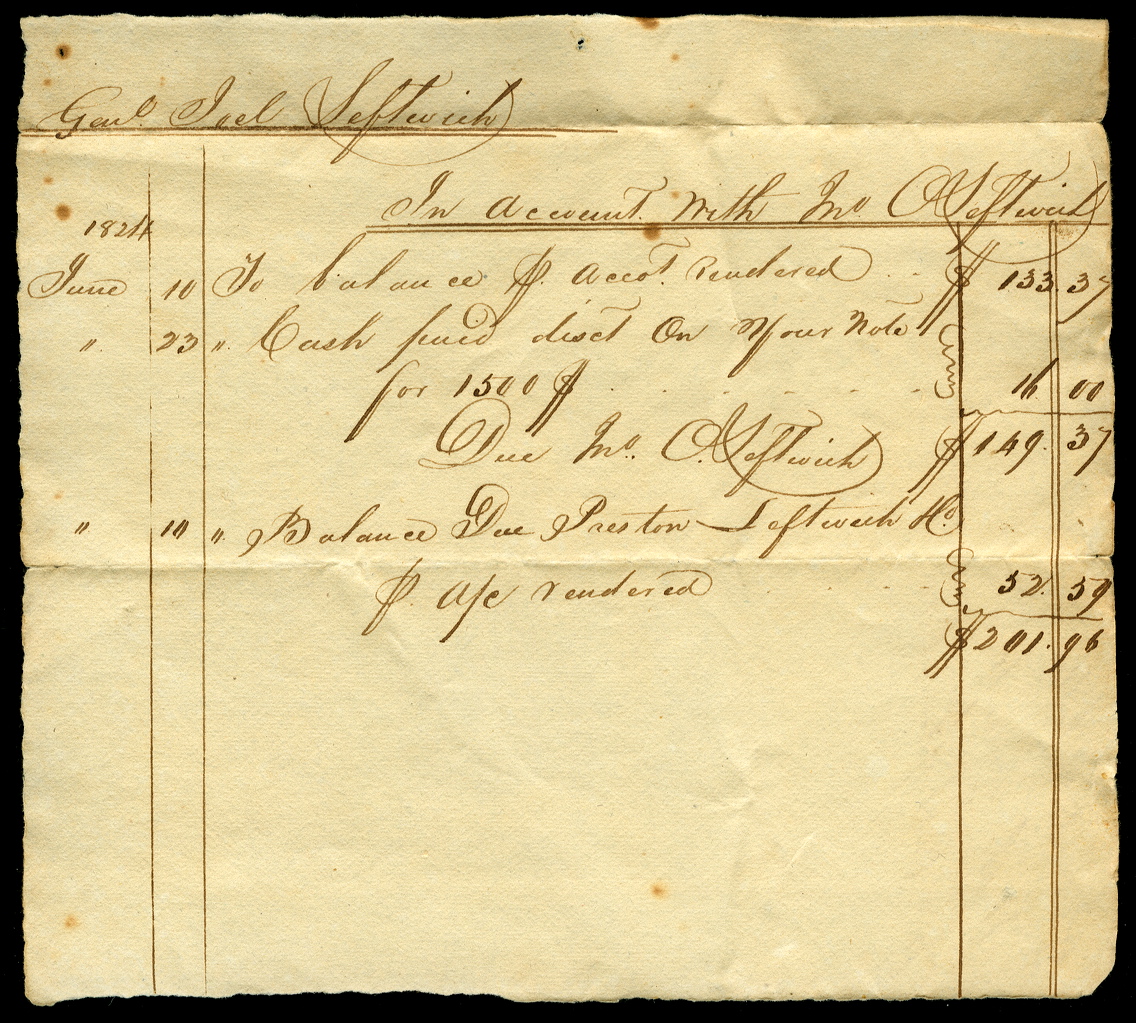 Genl. Joel Leftwich
In account With Jno O Leftwich
1824
June 10 To balance $. accot. rendered $ 133.37
" 23 " Cash paid disct On Your Note
for 1500 $ 16 00
Due Jno. O. Leftwich $ 149. 37
" 10 " Balance Due Preston Leftwich & Co
$. a/c rendered 52. 59
$ 201. 96